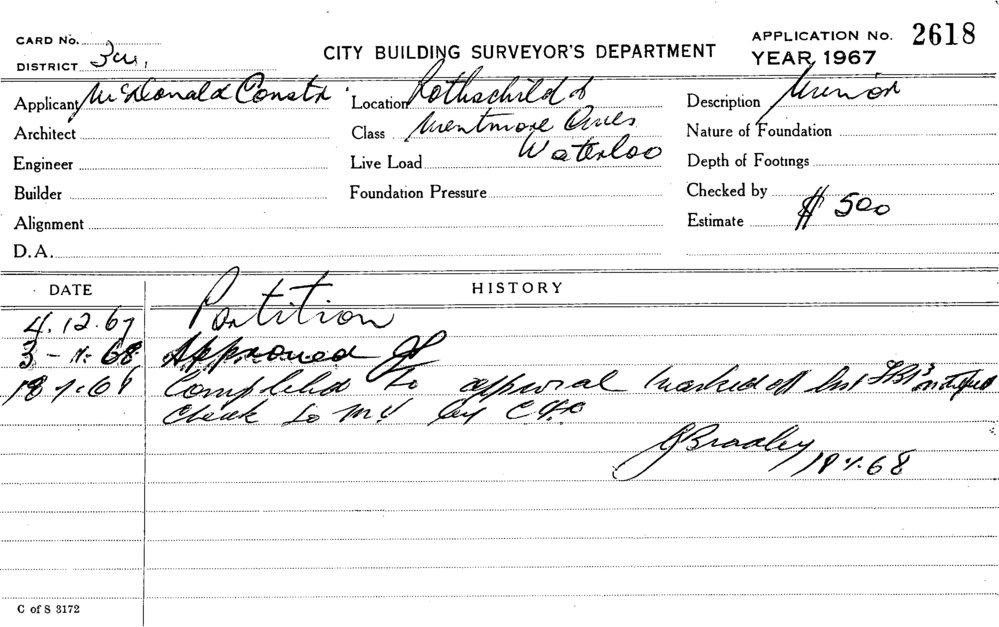 CARD No.
CITY BUILDING SURVEYOR'S DEPARTMENT
APPLICATION No. 2618
DISTRICT 3w,
YEAR 1967
Applicant McDonald Constn Location Rothschild & Description Minor
Architect Class Mentmore Aves Nature of Foundation
Waterloo
Engineer Live Load Depth of Footings
Builder Foundation Pressure Checked by
Alignment Estimate $ 500
D.A.
DATE HISTORY
4.12.67 Partition
3 - 1. 68 Approved
18.1.68 Completed to approval marked off
Check to by
J Bradley 18.1.68
C of S 3172